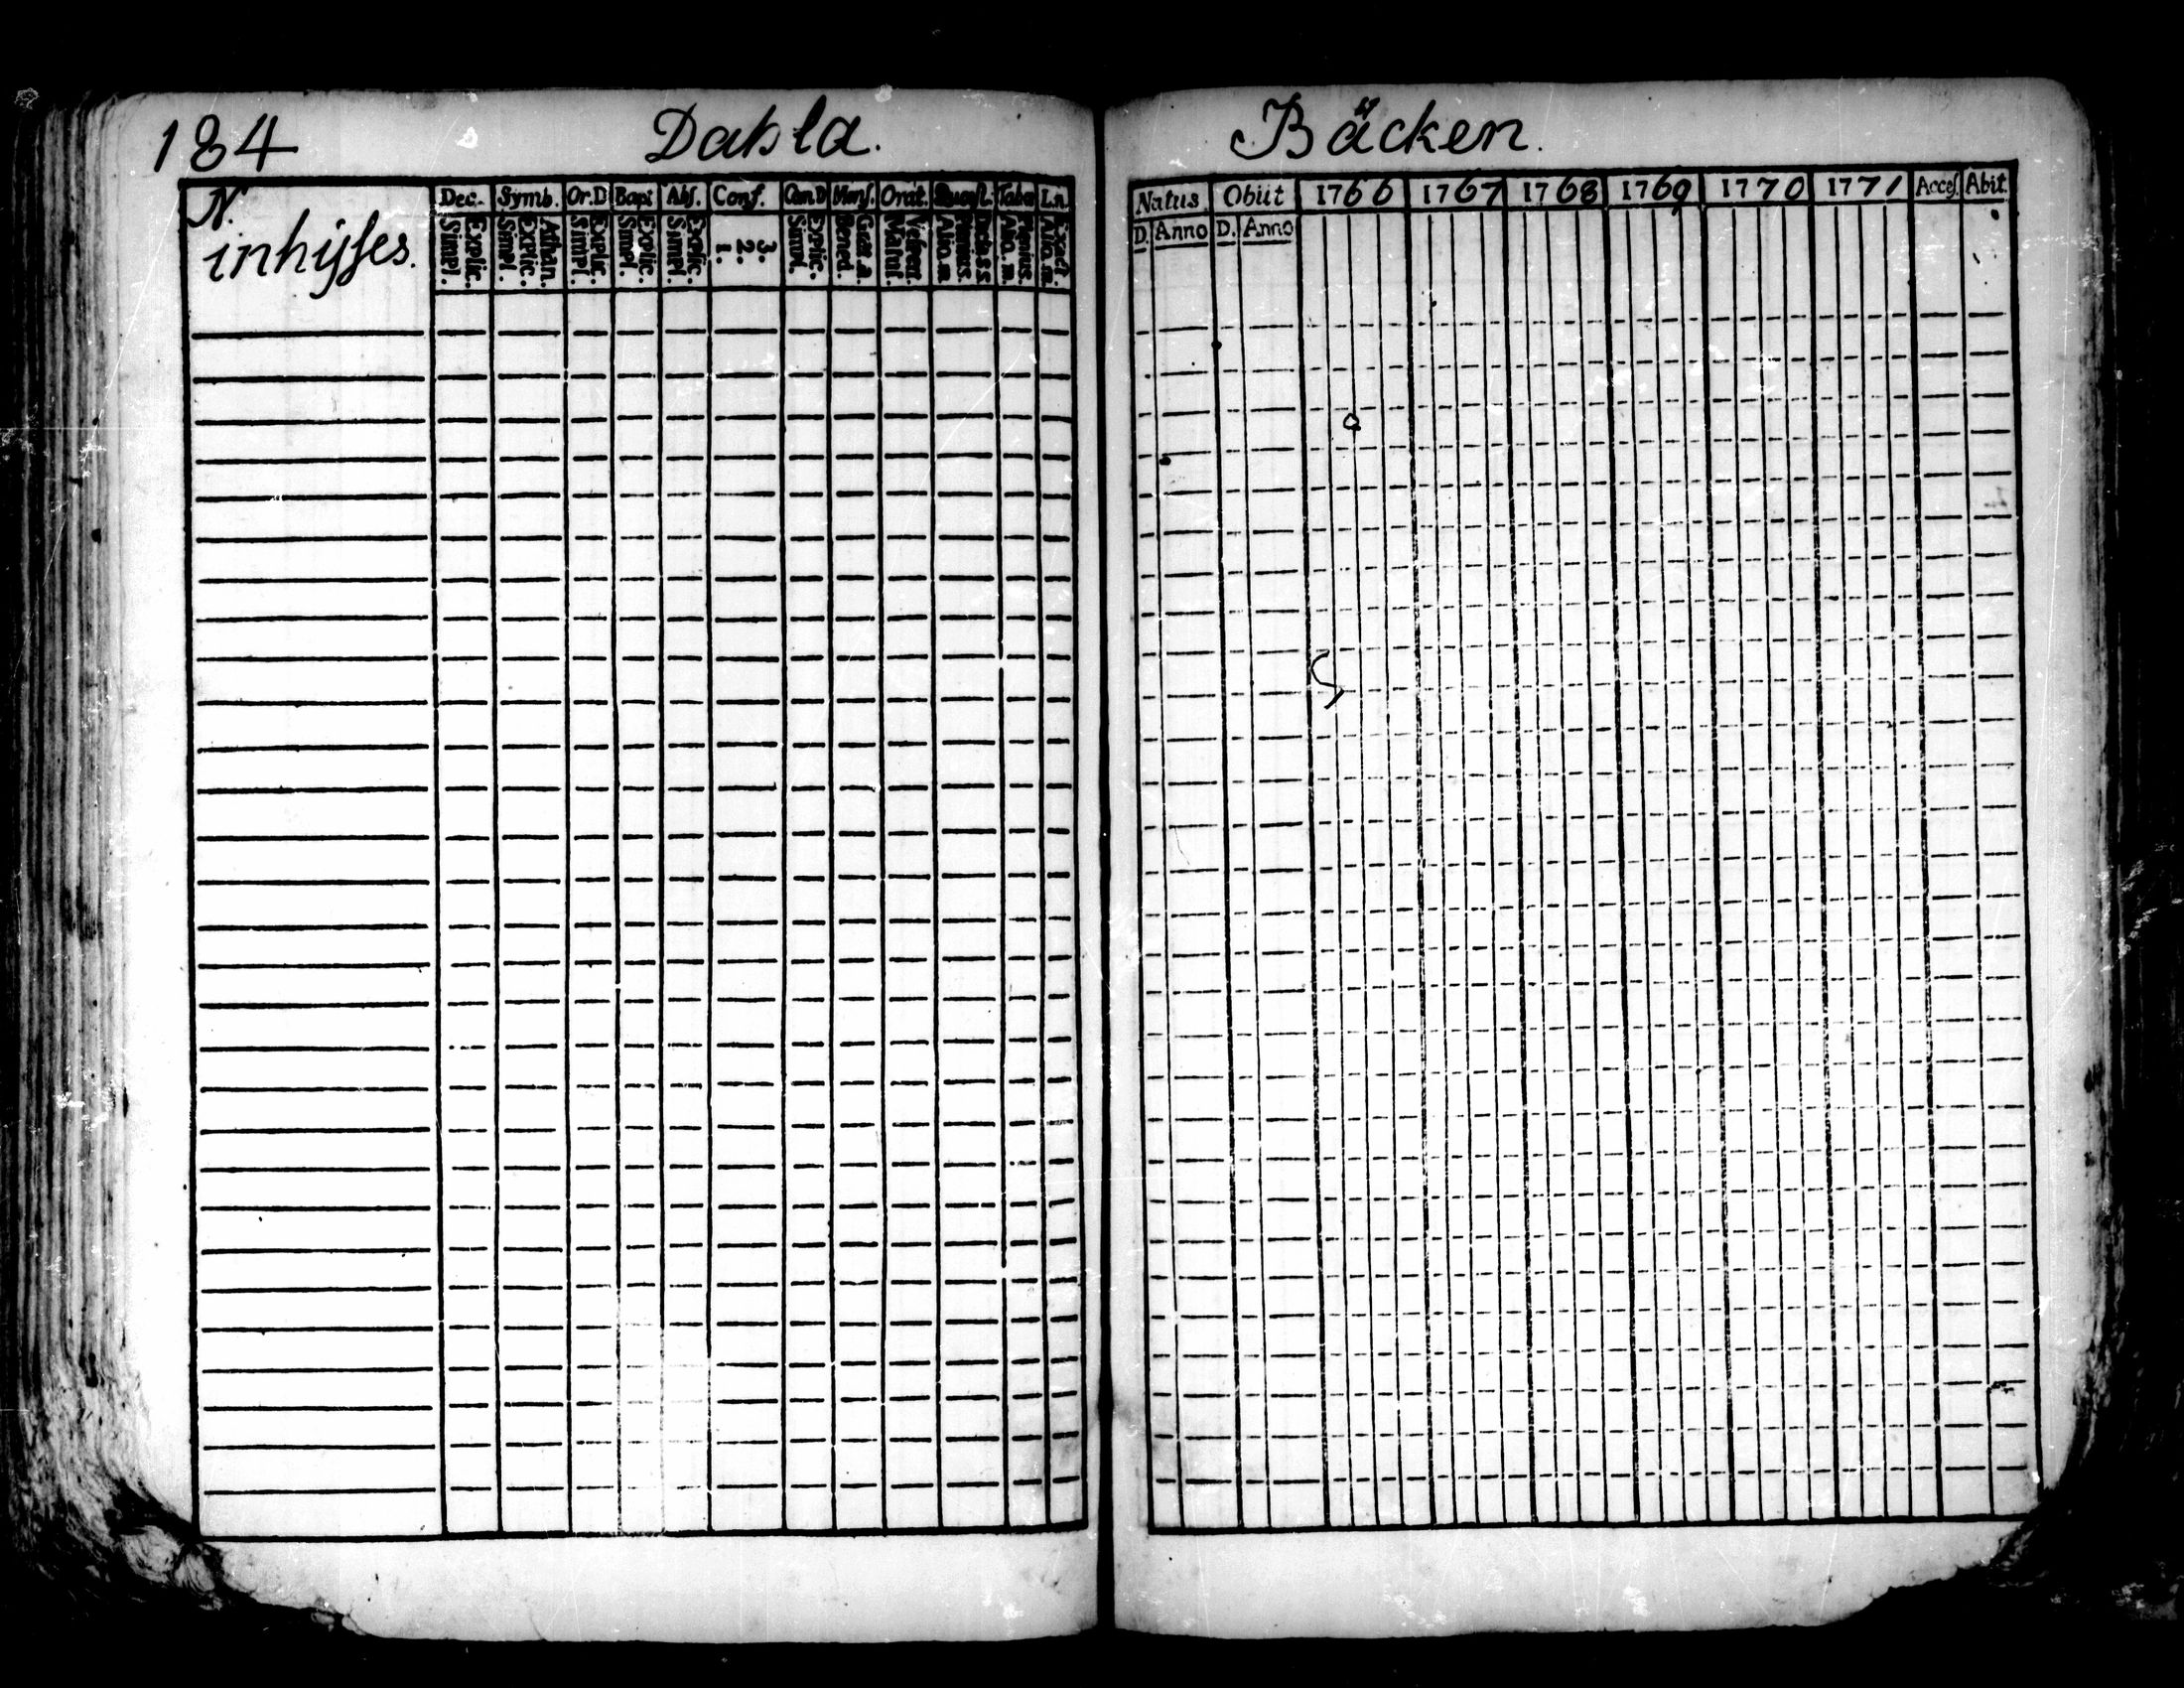 184 Dahla. Bäcken.
N. Dec. Symb. Or. D Bapt Abs. Conf. Cœn D Mens. Orat. Quæst. Taba L.n.
inhijſes.
Explic. Simpl. Athan. Explic. Simpl. Explic. Simpl. Explic. Simpl. Explic. Simpl. 3. 2. 1. Explic. Simpl. Grat. a. Bened. Vesfert. Matut. Plenius. Aliq. m. Exact Aliq. m.
Natus Obiit 1766 1767 1768 1769 1770 1771 Acceſ. Abit.
D. Anno D. Anno